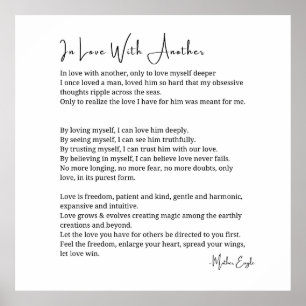 In Love With Another
In love with another, only to love myself deeper
I once loved a man, loved him so hard that my obsessive
thoughts ripple across the seas.
Only to realize the love I have for him was meant for me.
By loving myself, I can love him deeply.
By seeing myself, I can see him truthfully.
By trusting myself, I can trust him with our love.
By believing in myself, I can believe love never fails.
No more longing, no more fear, no more doubts, only
love, in its purest form.
Love is freedom, patient and kind, gentle and harmonic,
expansive and intuitive.
Love grows & evolves creating magic among the earthly
creations and beyond.
Let the love you have for others be directed to you first.
Feel the freedom, enlarge your heart, spread your wings,
let love win.
-Mother Eagle